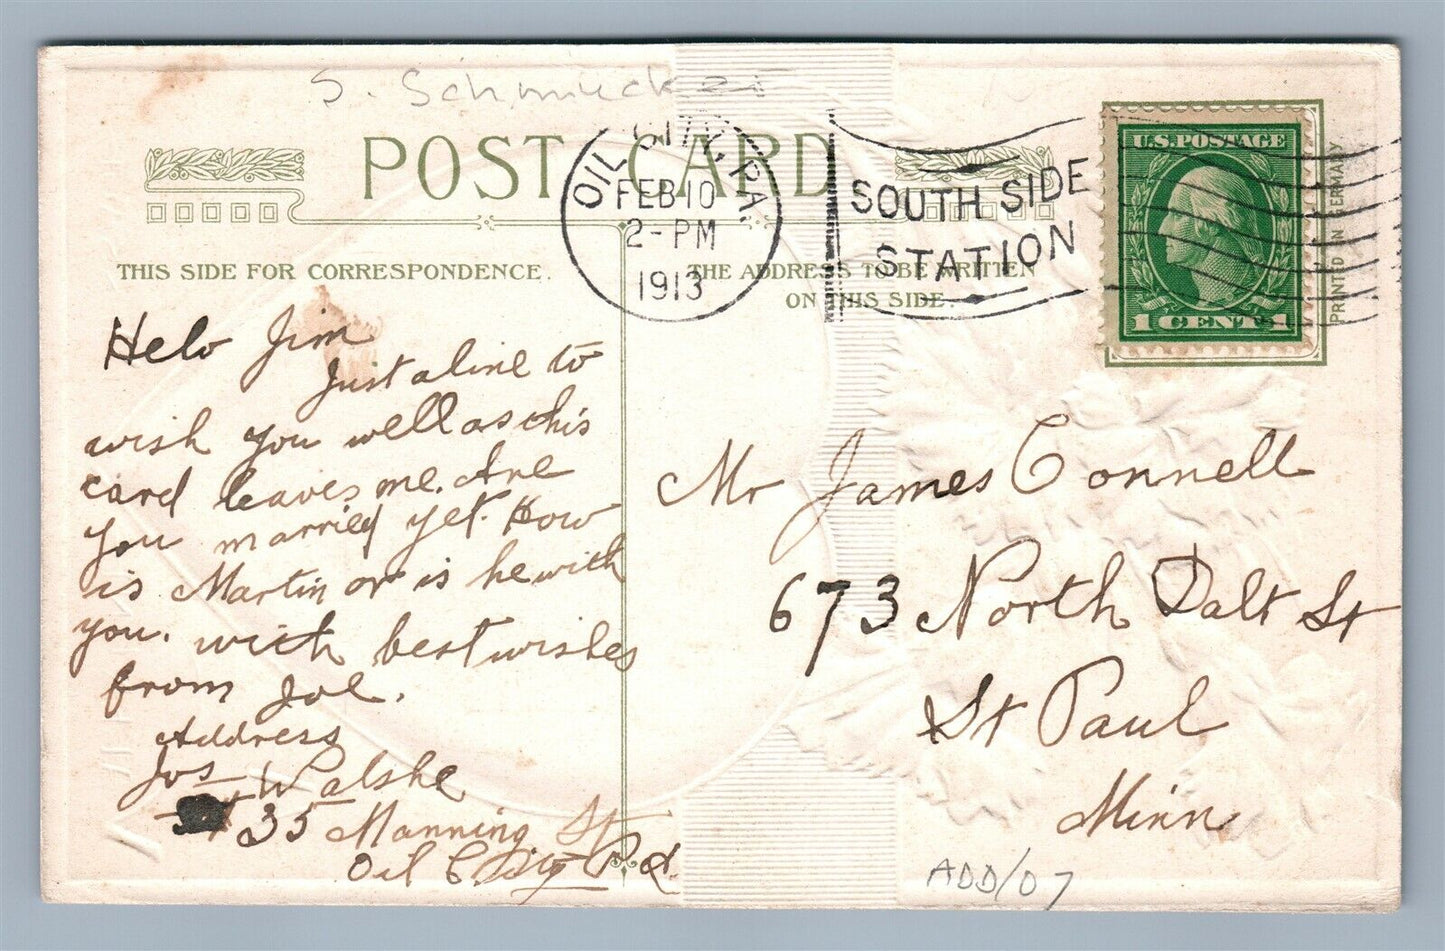 S. Schmucker
POST CARD
OIL CITY, PA.
FEB 10
2-PM
1913
SOUTH SIDE
STATION
U.S. POSTAGE
1 CENT 1
PRINTED IN GERMANY
THIS SIDE FOR CORRESPONDENCE.
THE ADDRESS TO BE WRITTEN
ON THIS SIDE.
Helo Jim
Just a line to
wish you well as this
card leaves me. Are
you married yet. How
is Martin or is he with
you. with best wishes
from Joe.
Address
Jos Walshe
35 Manning St
Oil City Pa.
Mr James Connell
673 North Dalt St
St Paul
Minn
ADD/07